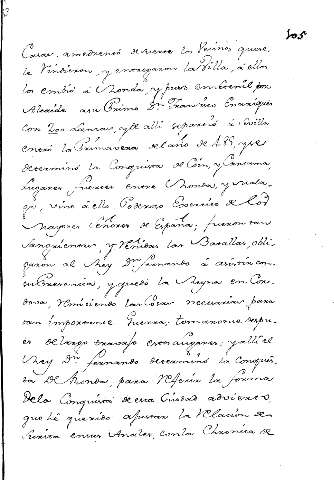 105
Casas, amedrentó de suerte los Vecinos, que se
le Vindieron, y entregaron la Villa, á ellos
los embió á Monda, y puso en Cenil por
Alcaide a su Primo Dn. Francisco Enrriques
con 200 Lanzas, y de alli se partió á Sevilla
entró la Primavera del año de 485, y se
determinó la Conquista de Coin, y Cartama,
Lugares fuertes entre Ronda, y Mala-
ga, vino á ello Poderoso Exercito de los
mayores Señores de España, fueron tan
sangrientas, y Reñidas las Batallas, obli-
garon al Rey Dn. Fernando á asistir con
su Presencia, y quedó la Reyna en Cor-
dova, Remitiendo las cosas necesarias para
tan importante Guerra, tomaronse despu-
es de largo travajo estos Lugares, y alli el
Rey Dn. Fernando determinó la Conquis-
ta de Ronda, para Referir la forma
de la Conquista de esta Ciudad advierto,
que hé querido ajustar la Relacion de
Zurita en sus Anales, con la Chronica de